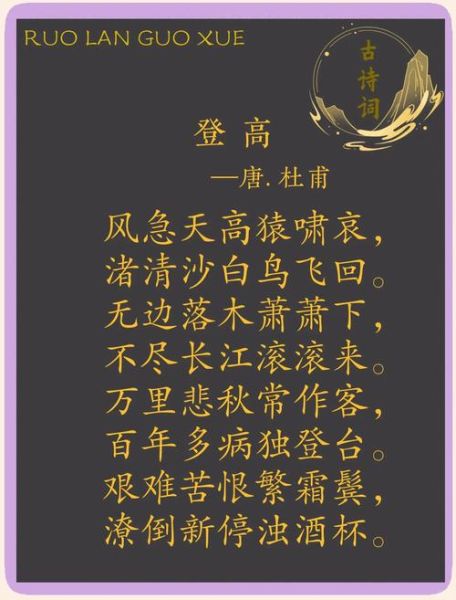 RUO LAN GUO XUE
古诗词
登高
—唐.杜甫
风急天高猿啸哀，
渚清沙白鸟飞回。
无边落木萧萧下，
不尽长江滚滚来。
万里悲秋常作客，
百年多病独登台。
艰难苦恨繁霜鬓，
潦倒新停浊酒杯。